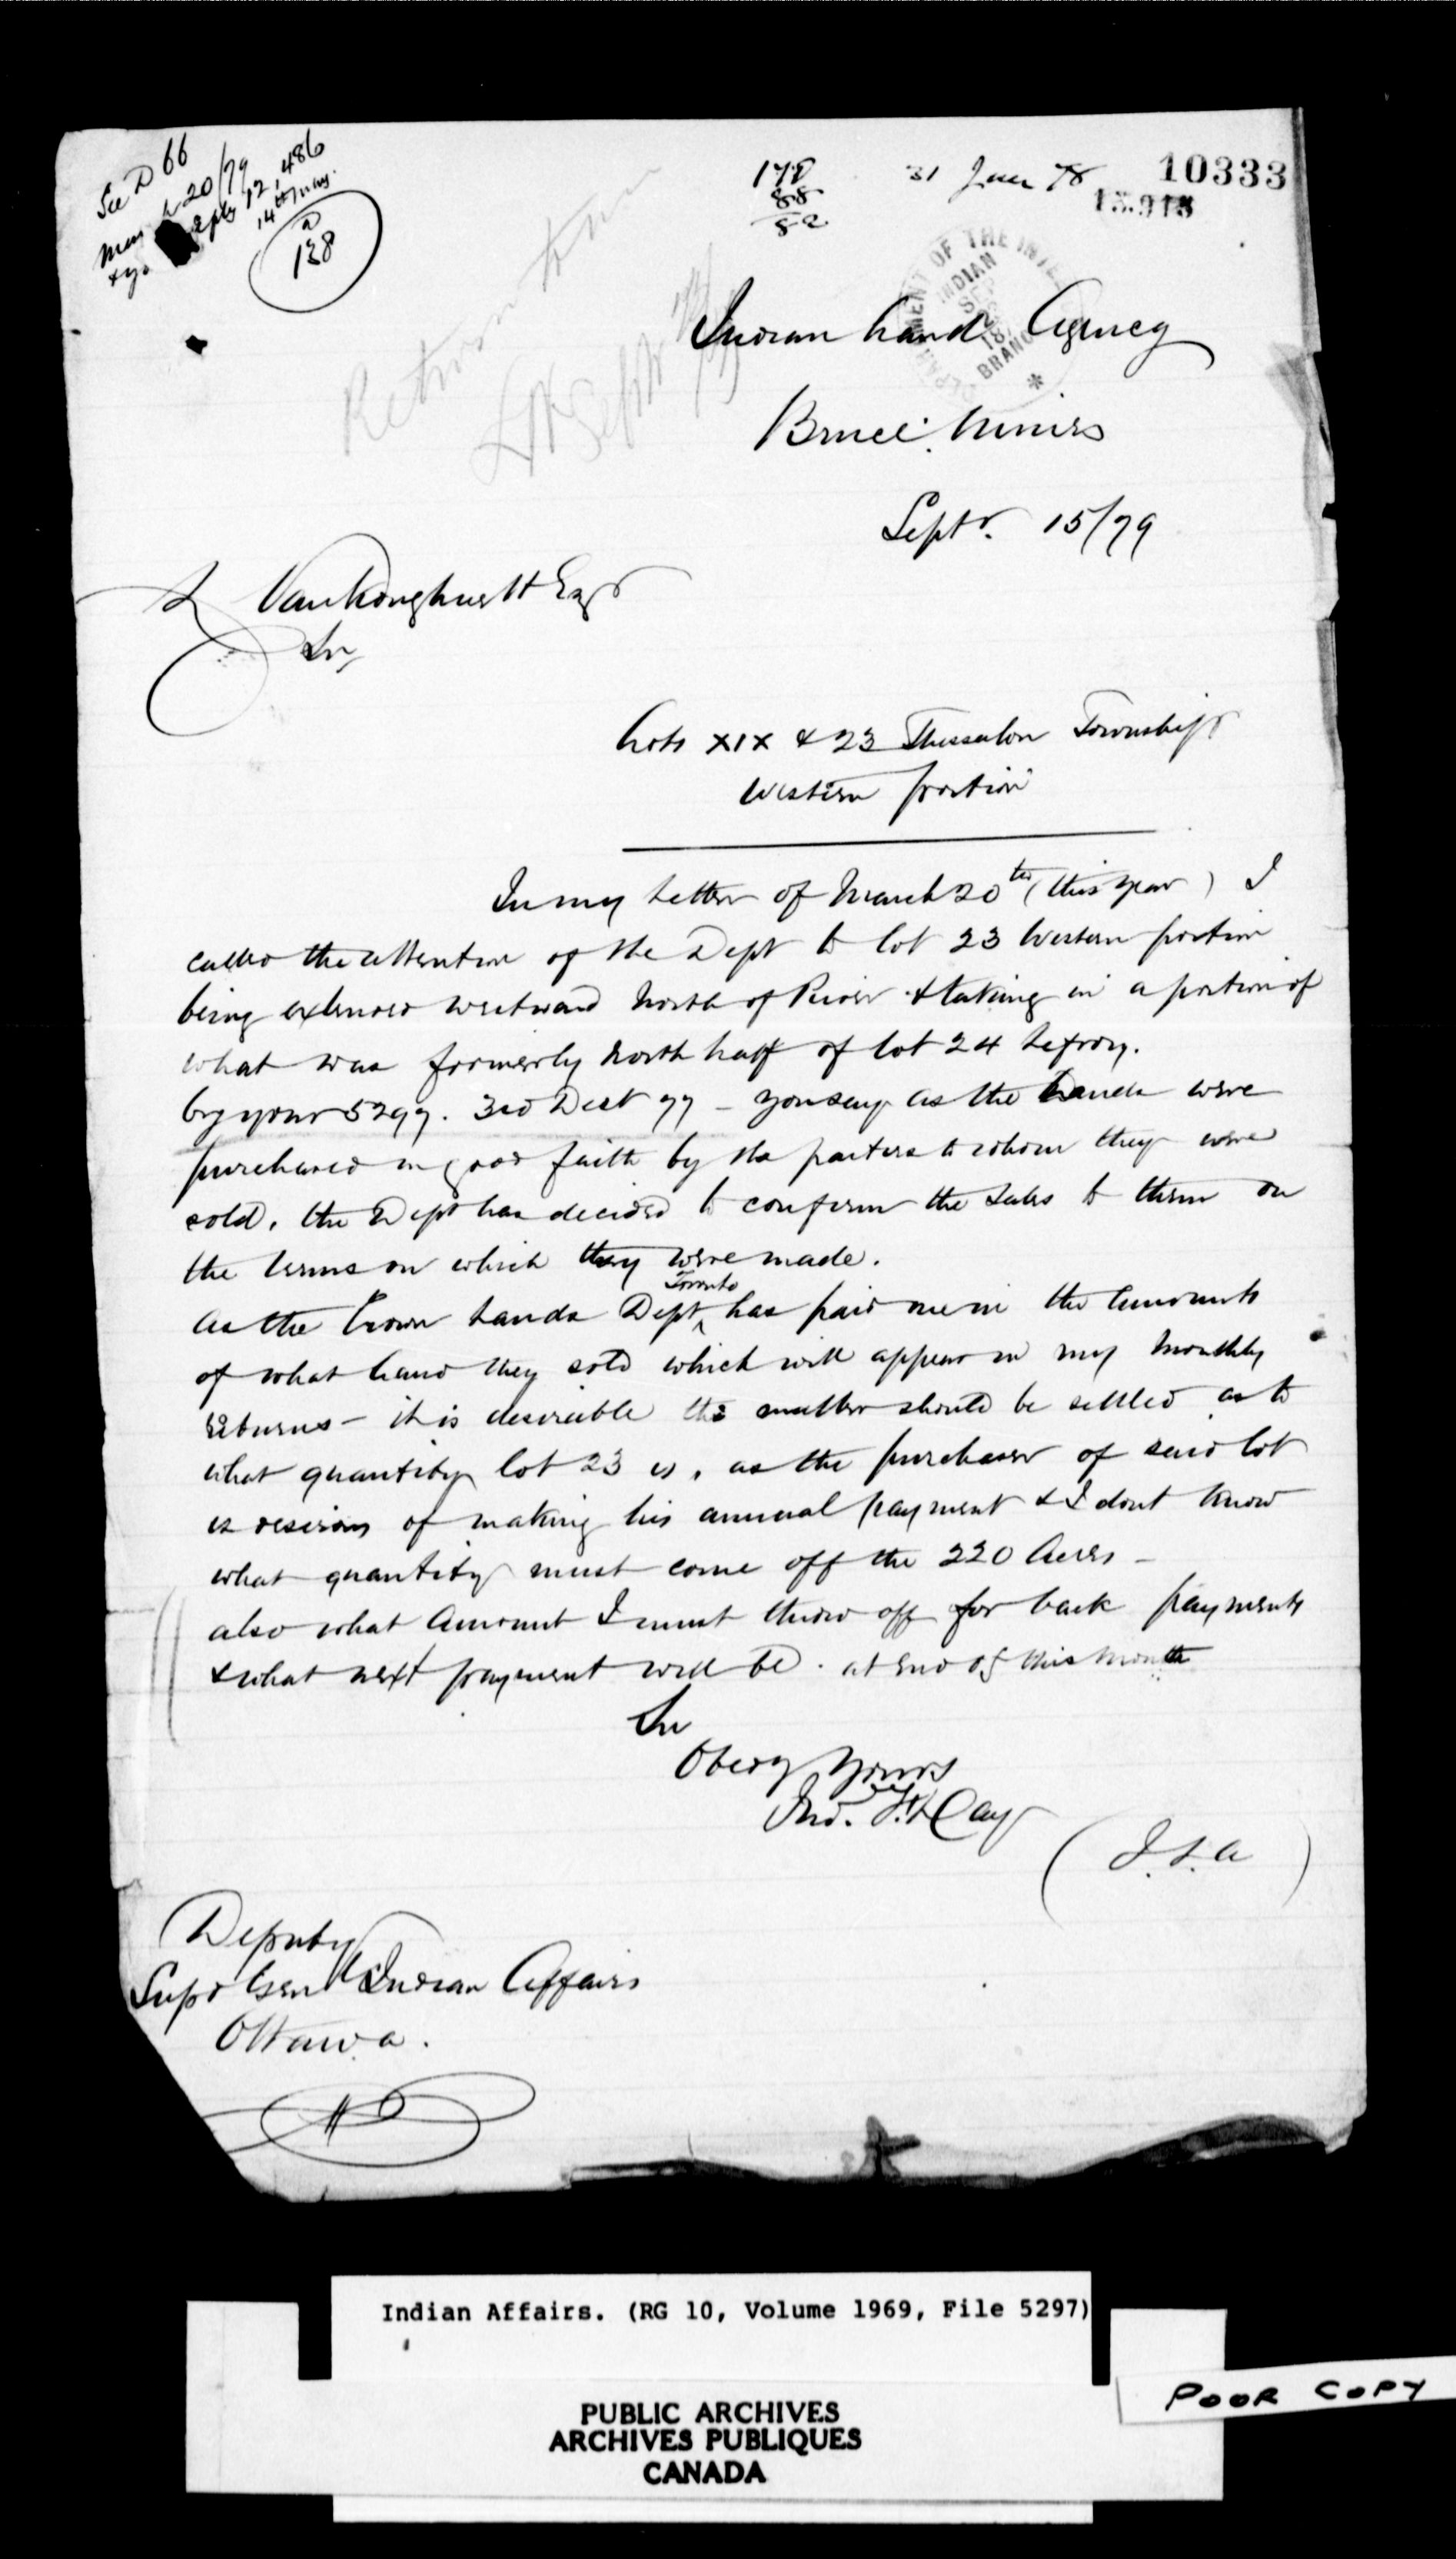 See D 66
March 20/79
reply 12,486
14th
D
138
178
88
82
31 Jan 78
10333
13.913
DEPARTMENT OF THE INTERIOR
INDIAN
SEP
BRANCH
Return to me
Sept
Indian Land Agency
Bruce Mines
Septr. 15/79
L Vankoughnett Esqr
Sir,
Lots XIX & 23 Thessalon Township
Western portion
In my Letter of March 20th (this year) I
called the attention of the Dept to lot 23 Western portion
being extended westward North of River & taking in a portion of
what was formerly North half of lot 24 Lefroy.
by your 5297. 3rd Dect 77 - you say as the Lands were
purchased in good faith by the parties to whom they were
sold, the Dept has decided to confirm the Sales to them on
the terms on which they were made.
As the Crown Lands Dept Toronto has paid me in the Amounts
of what Land they sold which will appear in my Monthly
returns - it is desireable the matter should be settled as to
what quantity lot 23 is, as the purchaser of said lot
is desirous of making his annual payment & I dont know
what quantity must come off the 220 Acres -
also what Amount I must throw off for back payments
& what next payment will be. at End of this Month
Sir
Obedy Yours
Jno. F. Day
(I.L.A)
Deputy
Supt Genl Indian Affairs
Ottawa.
Indian Affairs. (RG 10, Volume 1969, File 5297)
PUBLIC ARCHIVES
ARCHIVES PUBLIQUES
CANADA
POOR COPY